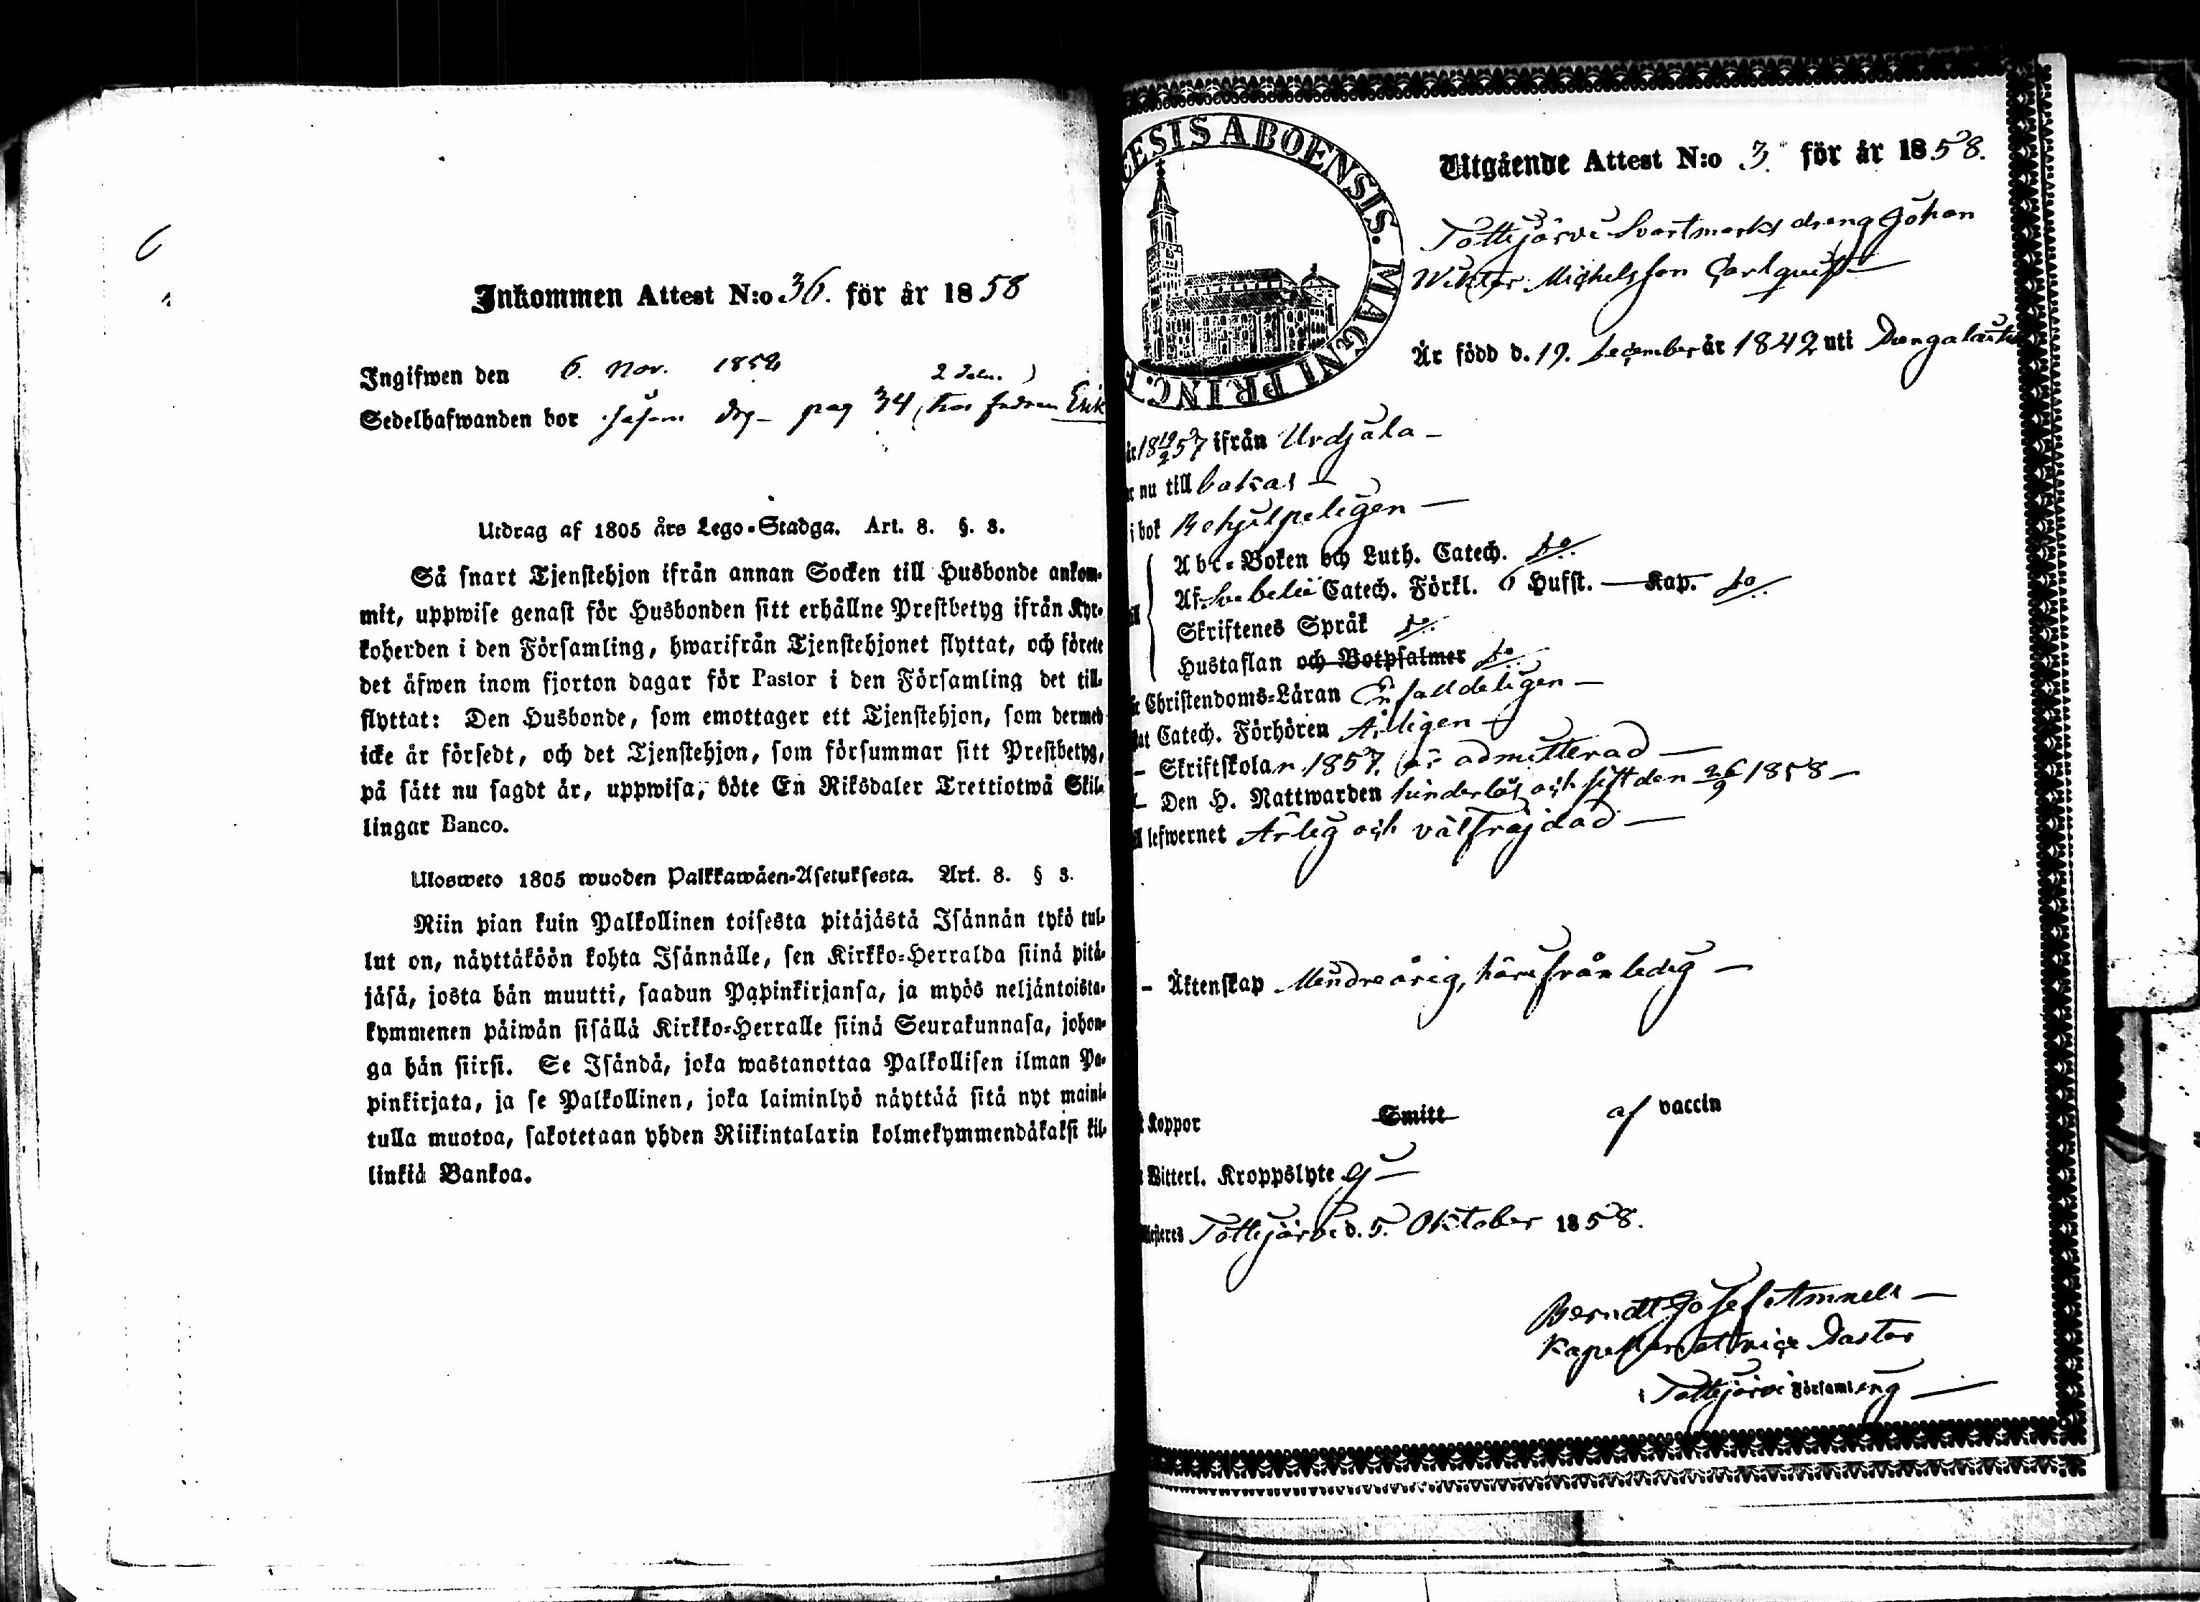 6
Inkommen Attest N:o 36. för år 1858
Ingifwen den 6. Nov. 1858
2 delen.
Sedelhafwanden bor drg pag 34 (hos fadren Erik
Utdrag af 1805 års Lego-Stadga. Art. 8. §. 3.
Så snart Tjenstehjon ifrån annan Socken till Husbonde ankom-
mit, uppwise genast för Husbonden sitt erhållne Prestbetyg ifrån Kyr-
koherden i den Församling, hwarifrån Tjenstehjonet flyttat, och förete
det äfwen inom fjorton dagar för Pastor i den Församling det till-
flyttat: Den Husbonde, som emottager ett Tjenstehjon, som dermed
icke är försedt, och det Tjenstehjon, som försummar sitt Prestbetyg,
på sätt nu sagdt är, uppwisa, böte En Riksdaler Trettiotwå Skil-
lingar Banco.
Ulosweto 1805 wuoden Palkkawäen-Asetuksesta. Art. 8. § 3.
Niin pian kuin Palkollinen toisesta pitäjästä Isännän tykö tul-
lut on, näyttäköön kohta Isännälle, sen Kirkko-Herralda siinä pitä-
jäsä, josta hän muutti, saadun Papinkirjansa, ja myös neljäntoista-
kymmenen päiwän sisällä Kirkko-Herralle siinä Seurakunnasa, johon-
ga hän siirsi. Se Isändä, joka wastanottaa Palkollisen ilman Pa-
pinkirjata, ja se Palkollinen, joka laiminlyö näyttää sitä nyt maini-
tulla muotoa, sakotetaan yhden Riikintalarin kolmekymmendäkaksi kil-
linkiä Bankoa.
ESIS ABOENSIS. MAGNI PRINC. F
Utgående Attest N:o 3. för år 1858.
Tottijärvi Svartmarks dreng Johan
Wiktor Michelsson Carlquist
Är född d. 19. December år 1842 uti
år 18 19/2 57 ifrån Urdjala
nu till
i bok Behjelpeligen
Abc-Boken och Luth. Catech. do.
Af Svebelii Catech. Förkl. 6 Hufst. Kap. do.
Skriftenes Språk do.
Hustaflan och Botpsalmer do.
Christendoms-Läran Enfalldeligen
Catech. Förhören Årligen
Skriftskolan 1857. är admitterad
Den H. Nattwarden och sist den 26/9 1858
lefwernet Ärlig och välfräjdad
Äktenskap Mindreårig, härifrån ledig
koppor Smitt af vaccin
Witterl. Kroppslyte Ej
Tottijärvi d. 5. Oktober 1858.
Berndt Josef
Kapellan et vice Pastor
i Tottijärvi Församling